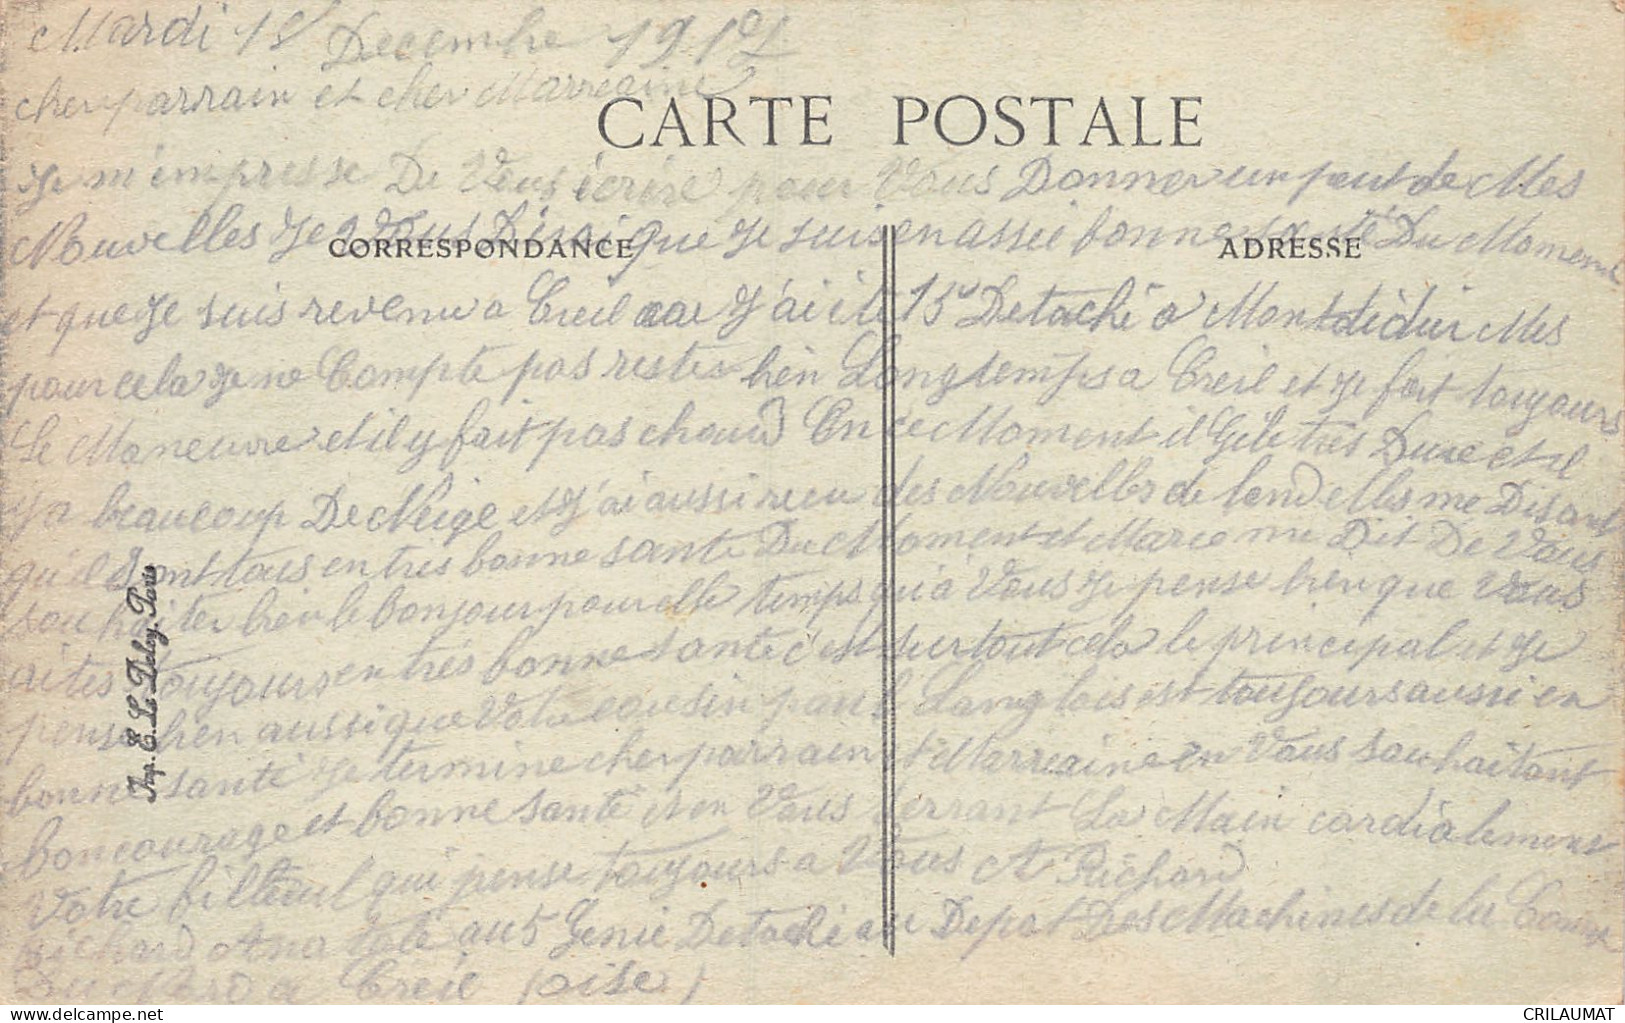 Mardi 18 Decembre 191
cher parrain et cher Marreaine
CARTE POSTALE
Je m'empresse De Vous écrire pour Vous Donner un peut de Mes
Nouvelles Je Vous Dirai que Je suis en assée bonne santé Du Moment
CORRESPONDANCE
ADRESSE
et que Je suis revenu a Creil car J'ai ité 15 Detaché a Montdidier Mes
pour cela Je ne Compte pas rester bien Longtemps a Creil et Je fait toujours
Le Maneuvre et il y fait pas chaud En ce Moment il Gèle très Dure et il
y a beaucoup De Neige et J'ai aussi reçu des Nouvelles de Mes me Disant
qu'il sont tous en tres bonne sante Du Moment et Marie me Dit De Vous
souhaiter bien le bonjour pour elle temps qu'a Vous Je pense bien que Vous
aites toujours en très bonne sante c'est surtout cela le principal et Je
pense bien aussi que Votre cousin paul Langlois est toujours aussi en
bonne santé Je termine cher parrain et Marreaine en Vous souhaitant
bon courage et bonne santé et en Vous serrant La Main cardialement
Votre filleul qui pense toujours a Vous A Richard
Richard Anatole au 5 Genie Detaché au Depot Des Machines de la Comp
Du Nord a Creil (oise)
Imp. E. Le Deley, Paris
CRILAUMAT